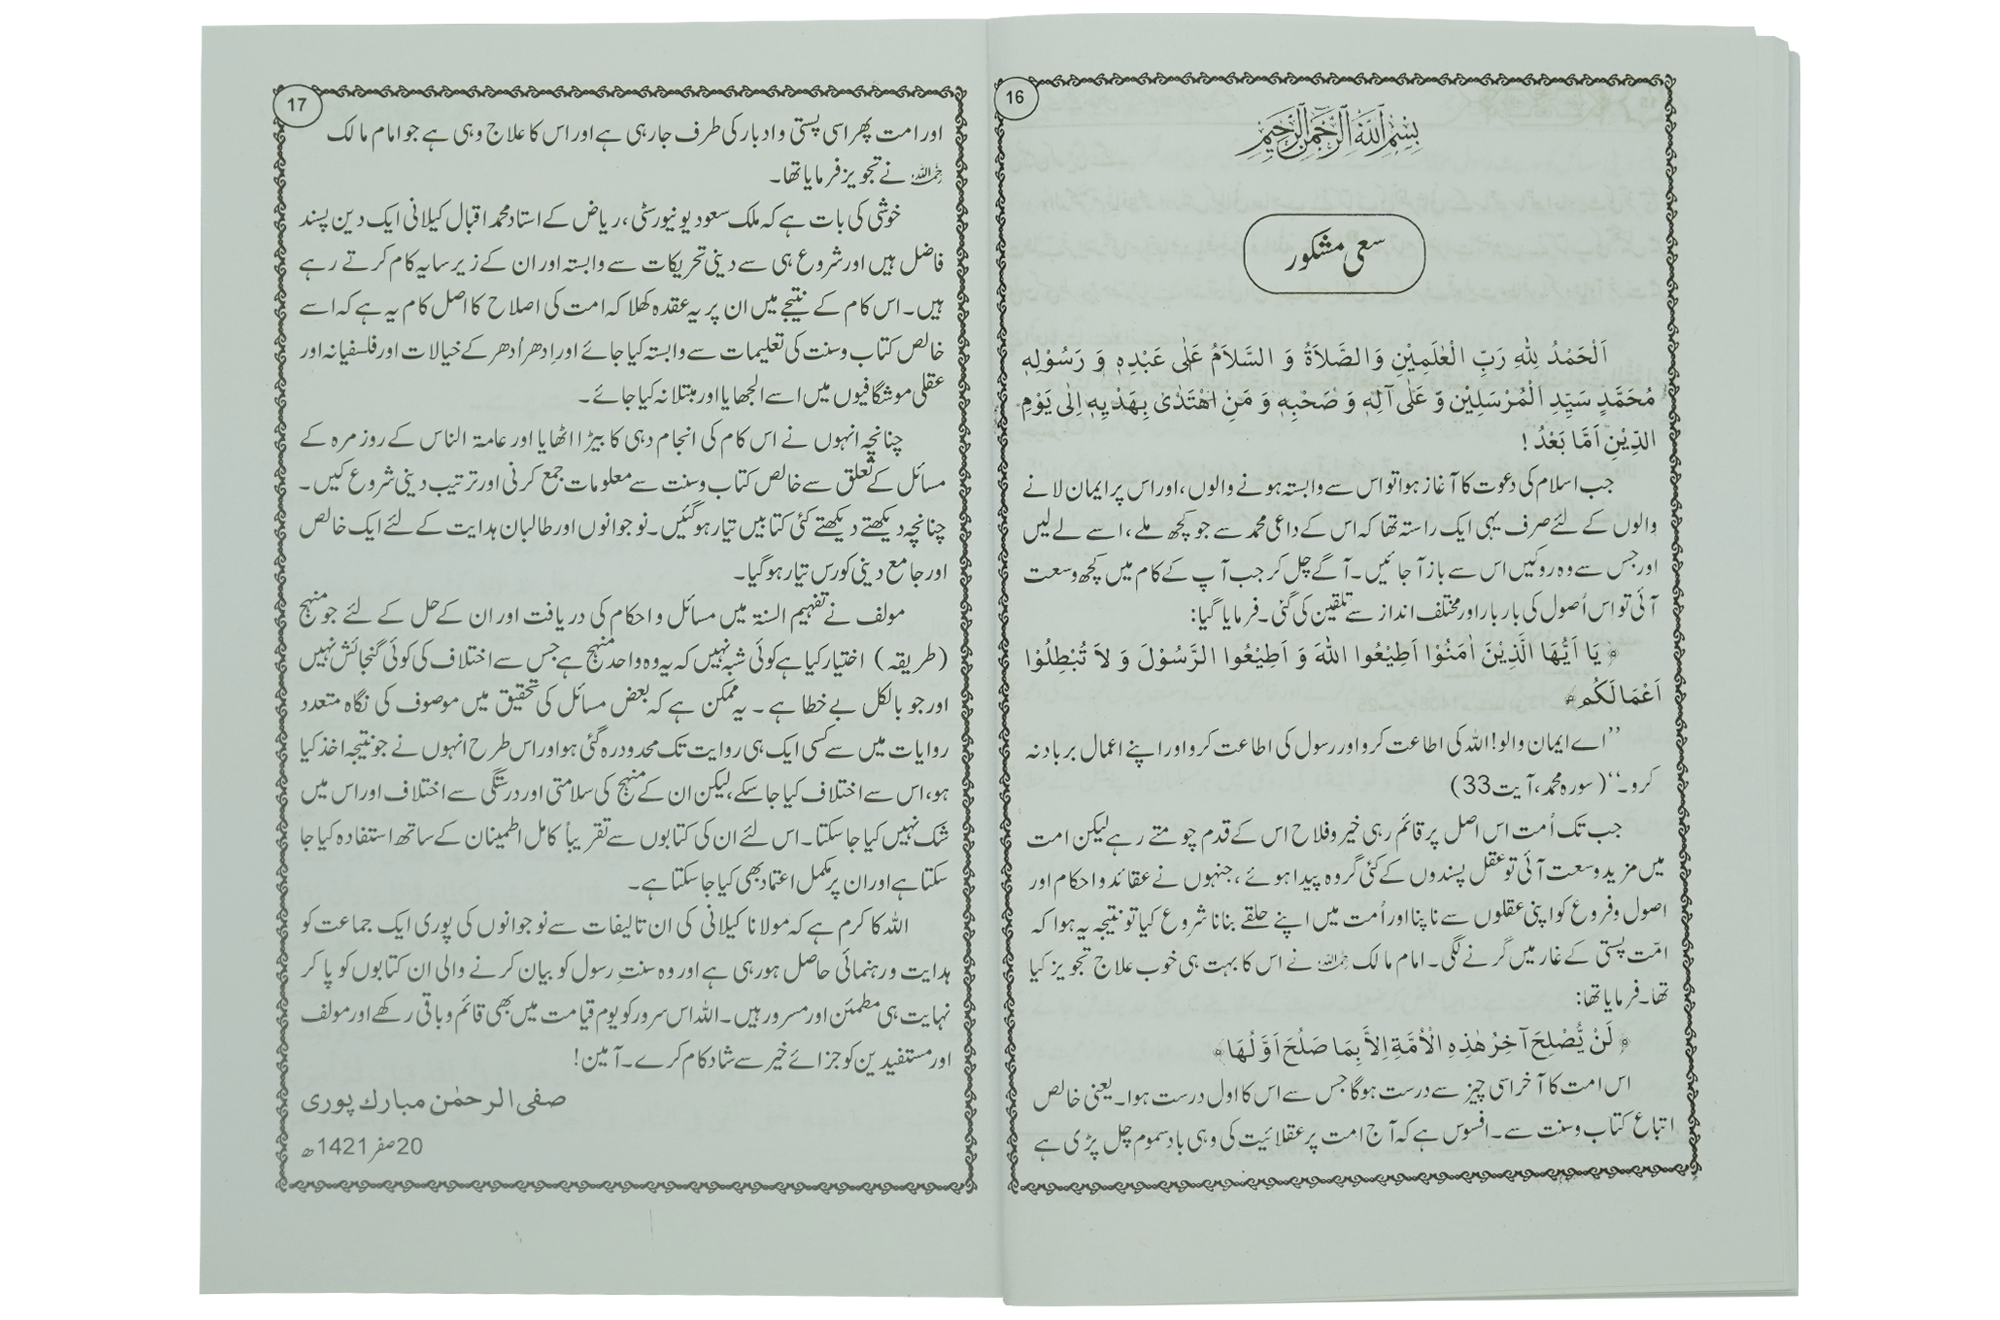 16
بِسْمِ اللهِ الرَّحْمٰنِ الرَّحِيْمِ
سعی مشکور
اَلْحَمْدُ لِلّٰهِ رَبِّ الْعٰلَمِيْنِ وَالصَّلَاةُ وَ السَّلاَمُ عَلٰى عَبْدِهٖ وَ رَسُوْلِهٖ
مُحَمَّدٍ سَيِّدِ الْمُرْسَلِيْنِ وَّ عَلٰى آلِهٖ وَ صَحْبِهٖ وَ مَنِ اهْتَدٰى بِهَدْيِهٖ اِلٰى يَوْمِ
الدِّيْنِ اَمَّا بَعْدُ !
جب اسلام کی دعوت کا آغاز ہوا تو اس سے وابستہ ہونے والوں، اور اس پر ایمان لانے
والوں کے لئے صرف یہی ایک راستہ تھا کہ اس کے داعی محمد سے جو کچھ ملے، اسے لے لیں
اور جس سے وہ روکیں اس سے باز آ جائیں۔ آگے چل کر جب آپ کے کام میں کچھ وسعت
آئی تو اس اُصول کی بار بار اور مختلف انداز سے تلقین کی گئی۔ فرمایا گیا:
﴿ يَا اَيُّهَا الَّذِيْنَ اٰمَنُوْا اَطِيْعُوا اللهَ وَ اَطِيْعُوا الرَّسُوْلَ وَ لاَ تُبْطِلُوْا
اَعْمَالَكُم﴾
’’اے ایمان والو! اللہ کی اطاعت کرو اور رسول کی اطاعت کرو اور اپنے اعمال برباد نہ
کرو۔‘‘ (سورہ محمد، آیت 33)
جب تک اُمت اس اصل پر قائم رہی خیر و فلاح اس کے قدم چومتے رہے لیکن امت
میں مزید وسعت آئی تو عقل پسندوں کے کئی گروہ پیدا ہوئے ، جنہوں نے عقائد و احکام اور
اصول و فروع کو اپنی عقلوں سے ناپنا اور اُمت میں اپنے حلقے بنانا شروع کیا تو نتیجہ یہ ہوا کہ
امّت پستی کے غار میں گرنے لگی۔ امام مالک رحمہ اللہ نے اس کا بہت ہی خوب علاج تجویز کیا
تھا۔ فرمایا تھا:
﴿ لَنْ يُّصْلِحَ آخِرُ هٰذِهِ الْاُمَّةِ اِلاَّ بِمَا صَلَحَ اَوَّلُهَا﴾
اس امت کا آخر اسی چیز سے درست ہوگا جس سے اس کا اول درست ہوا۔ یعنی خالص
اتباع کتاب و سنت سے۔ افسوس ہے کہ آج امت پر عقلائیت کی وہی باد سموم چل پڑی ہے
17
اور امت پھر اسی پستی و ادبار کی طرف جا رہی ہے اور اس کا علاج وہی ہے جو امام مالک
رحمہ اللہ نے تجویز فرمایا تھا۔
خوشی کی بات ہے کہ ملک سعود یونیورسٹی، ریاض کے استاد محمد اقبال کیلانی ایک دین پسند
فاضل ہیں اور شروع ہی سے دینی تحریکات سے وابستہ اور ان کے زیر سایہ کام کرتے رہے
ہیں۔ اس کام کے نتیجے میں ان پر یہ عقدہ کھلا کہ امت کی اصلاح کا اصل کام یہ ہے کہ اسے
خالص کتاب و سنت کی تعلیمات سے وابستہ کیا جائے اور اِدھر اُدھر کے خیالات اور فلسفیانہ اور
عقلی موشگافیوں میں اسے الجھایا اور مبتلا نہ کیا جائے۔
چنانچہ انہوں نے اس کام کی انجام دہی کا بیڑا اٹھایا اور عامۃ الناس کے روز مرہ کے
مسائل کے تعلق سے خالص کتاب و سنت سے معلومات جمع کرنی اور ترتیب دینی شروع کیں۔
چنانچہ دیکھتے دیکھتے کئی کتابیں تیار ہوگئیں۔ نوجوانوں اور طالبان ہدایت کے لئے ایک خالص
اور جامع دینی کورس تیار ہوگیا۔
مولف نے تفہیم السنۃ میں مسائل و احکام کی دریافت اور ان کے حل کے لئے جو منہج
(طریقہ) اختیار کیا ہے کوئی شبہ نہیں کہ یہ وہ واحد منہج ہے جس سے اختلاف کی کوئی گنجائش نہیں
اور جو بالکل بے خطا ہے ۔ یہ ممکن ہے کہ بعض مسائل کی تحقیق میں موصوف کی نگاہ متعدد
روایات میں سے کسی ایک ہی روایت تک محدود رہ گئی ہو اور اس طرح انہوں نے جو نتیجہ اخذ کیا
ہو، اس سے اختلاف کیا جاسکے، لیکن ان کے منہج کی سلامتی اور درستگی سے اختلاف اور اس میں
شک نہیں کیا جاسکتا۔ اس لئے ان کی کتابوں سے تقریباً کامل اطمینان کے ساتھ استفادہ کیا جا
سکتا ہے اور ان پر مکمل اعتماد بھی کیا جاسکتا ہے۔
اللہ کا کرم ہے کہ مولانا کیلانی کی ان تالیفات سے نوجوانوں کی پوری ایک جماعت کو
ہدایت و رہنمائی حاصل ہو رہی ہے اور وہ سنتِ رسول کو بیان کرنے والی ان کتابوں کو پا کر
نہایت ہی مطمئن اور مسرور ہیں۔ اللہ اس سرور کو یوم قیامت میں بھی قائم و باقی رکھے اور مولف
اور مستفیدین کو جزائے خیر سے شاد کام کرے۔ آمین!
صفی الرحمٰن مبارک پوری
20 صفر 1421ھ